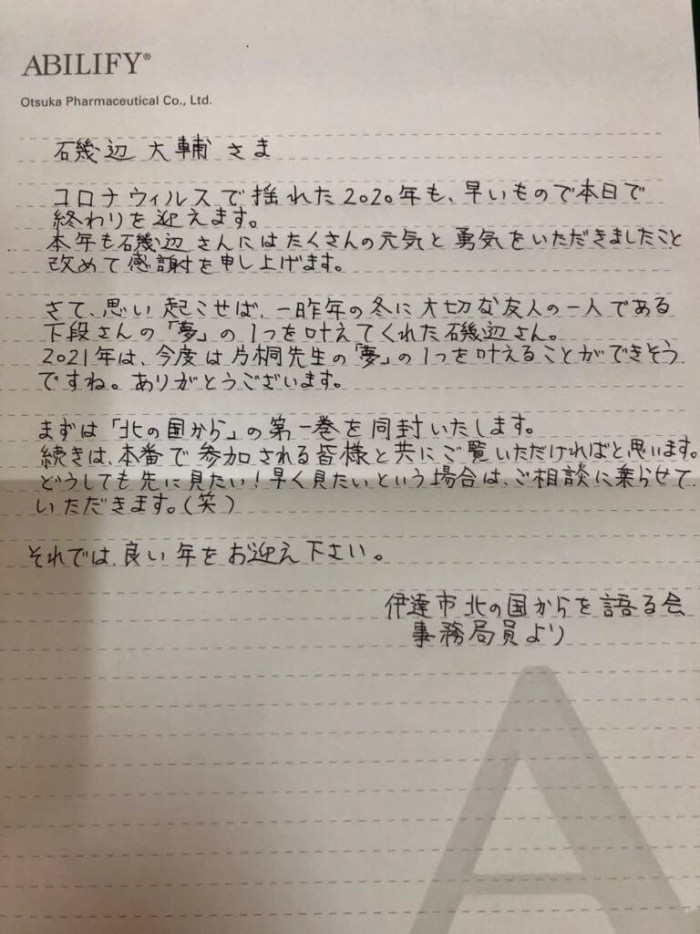 ABILIFY®
Otsuka Pharmaceutical Co., Ltd.
石磯辺 大輔 さま
コロナウィルスで揺れた2020年も、早いもので本日で
終わりを迎えます。
本年も石磯辺さんにはたくさんの元気と勇気をいただきましたこと
改めて感謝を申し上げます。
さて、思い起こせば、一昨年の冬に大切な友人の一人である
下段さんの「夢」の1つを叶えてくれた石磯辺さん。
2021年は、今度は片桐先生の「夢」の1つを叶えることができそう
ですね。ありがとうございます。
まずは「北の国から」の第一巻を同封いたします。
続きは、本番で参加される皆様と共にご覧いただければと思います。
どうしても先に見たい!早く見たいという場合は、ご相談に乗らせて
いただきます。(笑)
それでは、良い年をお迎え下さい。
伊達市北の国からを語る会
事務局員より
A